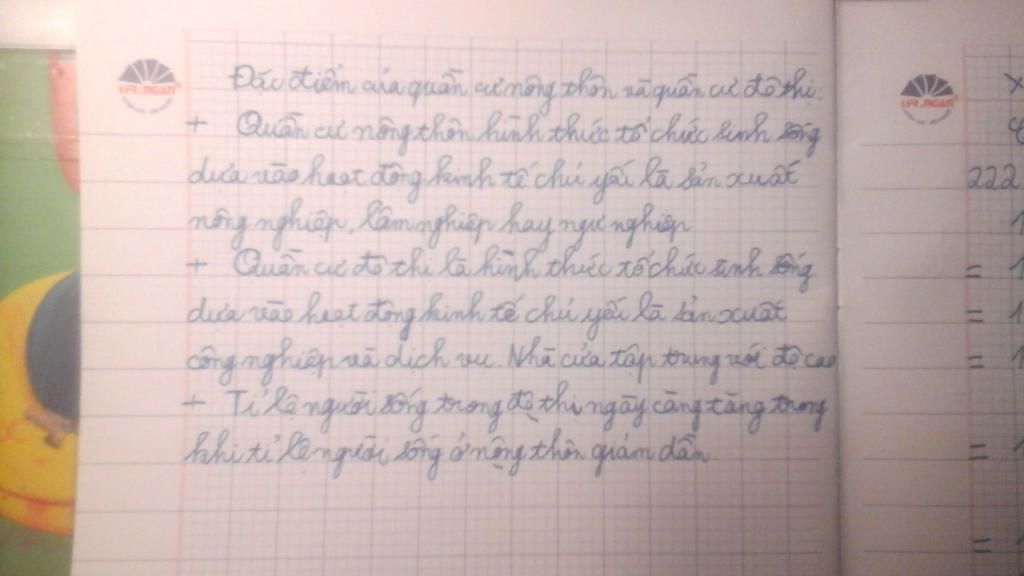 Đặc điểm của quần cư nông thôn và quần cư đô thị.
+ Quần cư nông thôn hình thức tổ chức sinh sống
dựa vào hoạt động kinh tế chủ yếu là sản xuất
nông nghiệp, lâm nghiệp hay ngư nghiệp
+ Quần cư đô thị là hình thức tổ chức sinh sống
dựa vào hoạt động kinh tế chủ yếu là sản xuất
công nghiệp và dịch vụ. Nhà cửa tập trung với độ cao
+ Tỉ lệ người sống trong đô thị ngày càng tăng trong
khi tỉ lệ người sống ở nông thôn giảm dần.
222
= 1
= 1
= 1
= 1